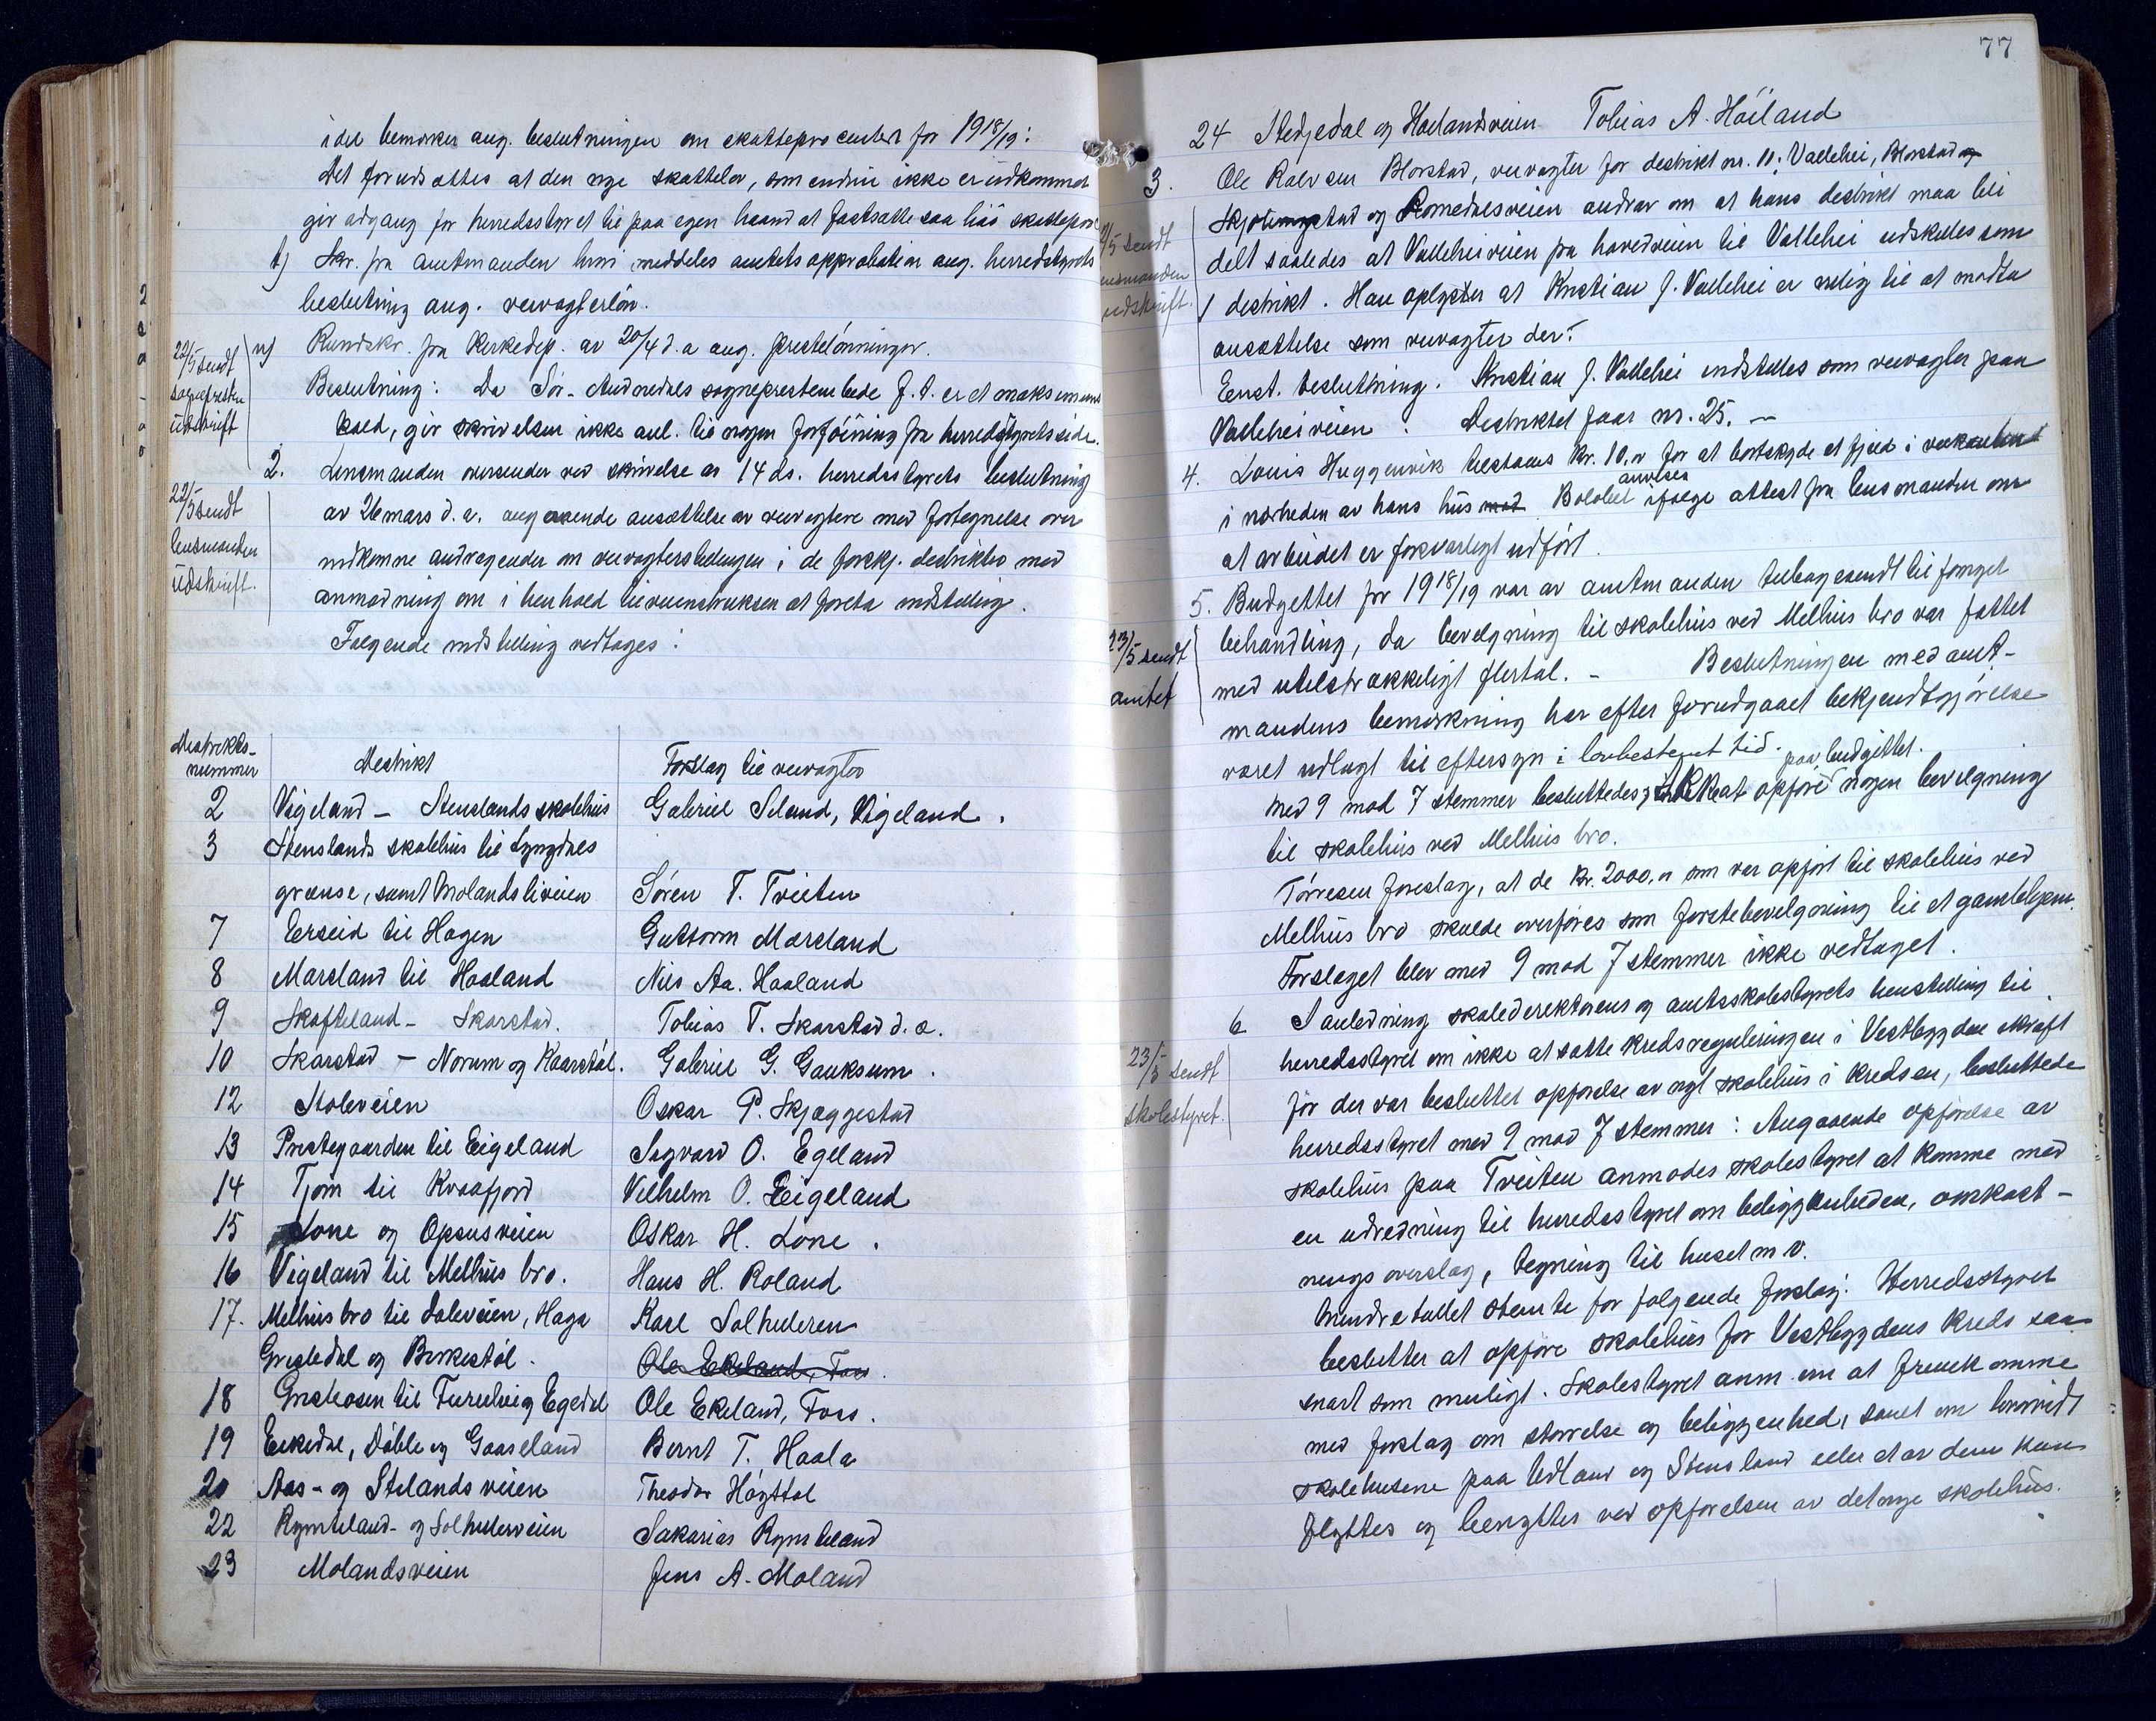 idet bemerker ang. beslutningen om skatteprocenten for 1918/19:
Det forudsættes at den nye skattelov, som endnu ikke er utkommet
gir adgang for herredsstyret til paa egen haand at fastsætte saa høi skatteproc.
t) Skr. fra amtmanden hvori meddeles amtets approbation ang. herredsstyrets
beslutning ang. veivogterløn.
22/5 sendt
sognepresten
utskrift
u) Rundskr. fra Kirkedep. av 20/4 d.a ang. prestelønninger.
Beslutning: Da Sør-Audnedals sogneprestembede f.t. er et maksimums
kald, gir skrivelsen ikke anl. til nogen forføining fra herredsstyrets side.
22/5 sendt
lensmanden
utskrift.
2. Lensmanden oversender ved skrivelse av 14 ds. herredsstyrets beslutning
av 26 mars d.a. angaaende ansættelse av veivogtere med fortegnelse over
indkomne andragender om veivogterstillingen i de forskj. destrikter med
anmodning om i henhold til veiinstruksen at foreta indstilling.
Følgende indstilling vedtages:
Destrikts-
nummer Destrikt Forslag til veivogter
2 Vigeland - Stenslands skolehus Gabriel Seland, Vigeland.
3 Stenslands skolehus til Lyngdals
grænse, samt Molandsliveien Søren T. Tveiten
7 Erseid til Hagen Guttorm Møreland
8 Marsland til Haaland Nils Aa. Haaland
9 Skofteland - Skarstad. Tobias T. Skarstad d.æ.
10 Skarstad - Norum og Kaarstøl. Gabriel G. Gauksum.
12 Stoleveien Oskar P. Skjæggestad
13 Prestegaarden til Eigeland Sigvard O. Egeland
14 Tjøm til Kvaafjord Vilhelm O. Eigeland
15 Lone og Opsusveien Oskar H. Lone.
16 Vigeland til Melhus bro. Hans H. Roland
17. Melhus bro til Daleveien, Haga Karl Solhuderen
Grisledal og Birkestøl. Ole Ekeland, Foss.
18 til Egedal Ole Ekeland, Foss.
19 Eikedal, Døble og Gaaseland Bernt T. Haala
20 Aas- og Stelandsveien Theodor Høyttal
22 Rymteland- og Solhuderveien Sakarias Rymteland
23 Molandsveien Jens A. Moland
77
24 Stedjedal og Hoilandsveien Tobias A. Høiland
3. Ole Rolvsen Blørstad, veivogter for destrikt nr. 11: Vallehei, Blørstad og
/5 sendt
lensmanden
utskrift.
og Romedalsveien andrar om at hans destrikt maa bli
delt saaledes at Valleheiveien fra hovedveien til Vallehei utskilles som
1 destrikt. Han oplyser at Kristian J. Vallehei er villig til at motta
ansættelse som veivogter der.
Enst. beslutning. Kristian J. Vallehei indstilles som veivogter paa
Valleheiveien. Destriktet faar nr. 25. -
4. Louis Huggenvik tilstaaes kr. 10.- for at bortskyte et fjeld i veikanten
i nærheden av hans hus mot Beløbet anvises ifølge attest fra lensmanden om
at arbeidet er forsvarligt utført.
5. Budgettet for 1918/19 var av amtmanden tilbagesendt til fornyet
23/5 sendt
amtet
behandling, da bevilgning til skolehus ved Melhus bro var fattet
med utilstrækkeligt flertal. - Beslutningen med amt-
mandens bemerkning har efter forudgaaet bekjendtgjørelse
været utlagt til eftersyn i lovbestemt tid.
Med 9 mod 7 stemmer besluttedes ikke at opføre nogen bevilgning paa budgettet.
til skolehus ved Melhus bro.
Tørresen foreslog, at de kr. 2000.- som var opført til skolehus ved
Melhus bro skulde overføres som første bevilgning til et gamlehjem.
Forslaget blev med 9 mod 7 stemmer ikke vedtaget.
6 I anledning skoledirektørens og amtsskolestyrets henstilling til
23/5 sendt
skolestyret.
herredsstyret om ikke at sætte kredsreguleringen i Vestbygden i kraft
før der var besluttet opførelse av nyt skolehus i kredsen, besluttede
herredsstyret med 9 mod 7 stemmer: Angaaende opførelse av
skolehus paa Tveiten anmodes skolestyret at komme med
en utredning til herredsstyret om beliggenheden, omkost-
ningsoverslag, tegning til huset m v.
Mindretallet stemte for følgende forslag: Herredsstyret
beslutter at opføre skolehus for Vestbygdens kreds saa
snart som muligt. Skolestyret anm. om at fremkomme
med forslag om størrelse og beliggenhed, samt om hvorvidt
skolehusene paa Udland og Stensland eller et av dem kan
flyttes og benyttes ved opførelsen av det nye skolehus.